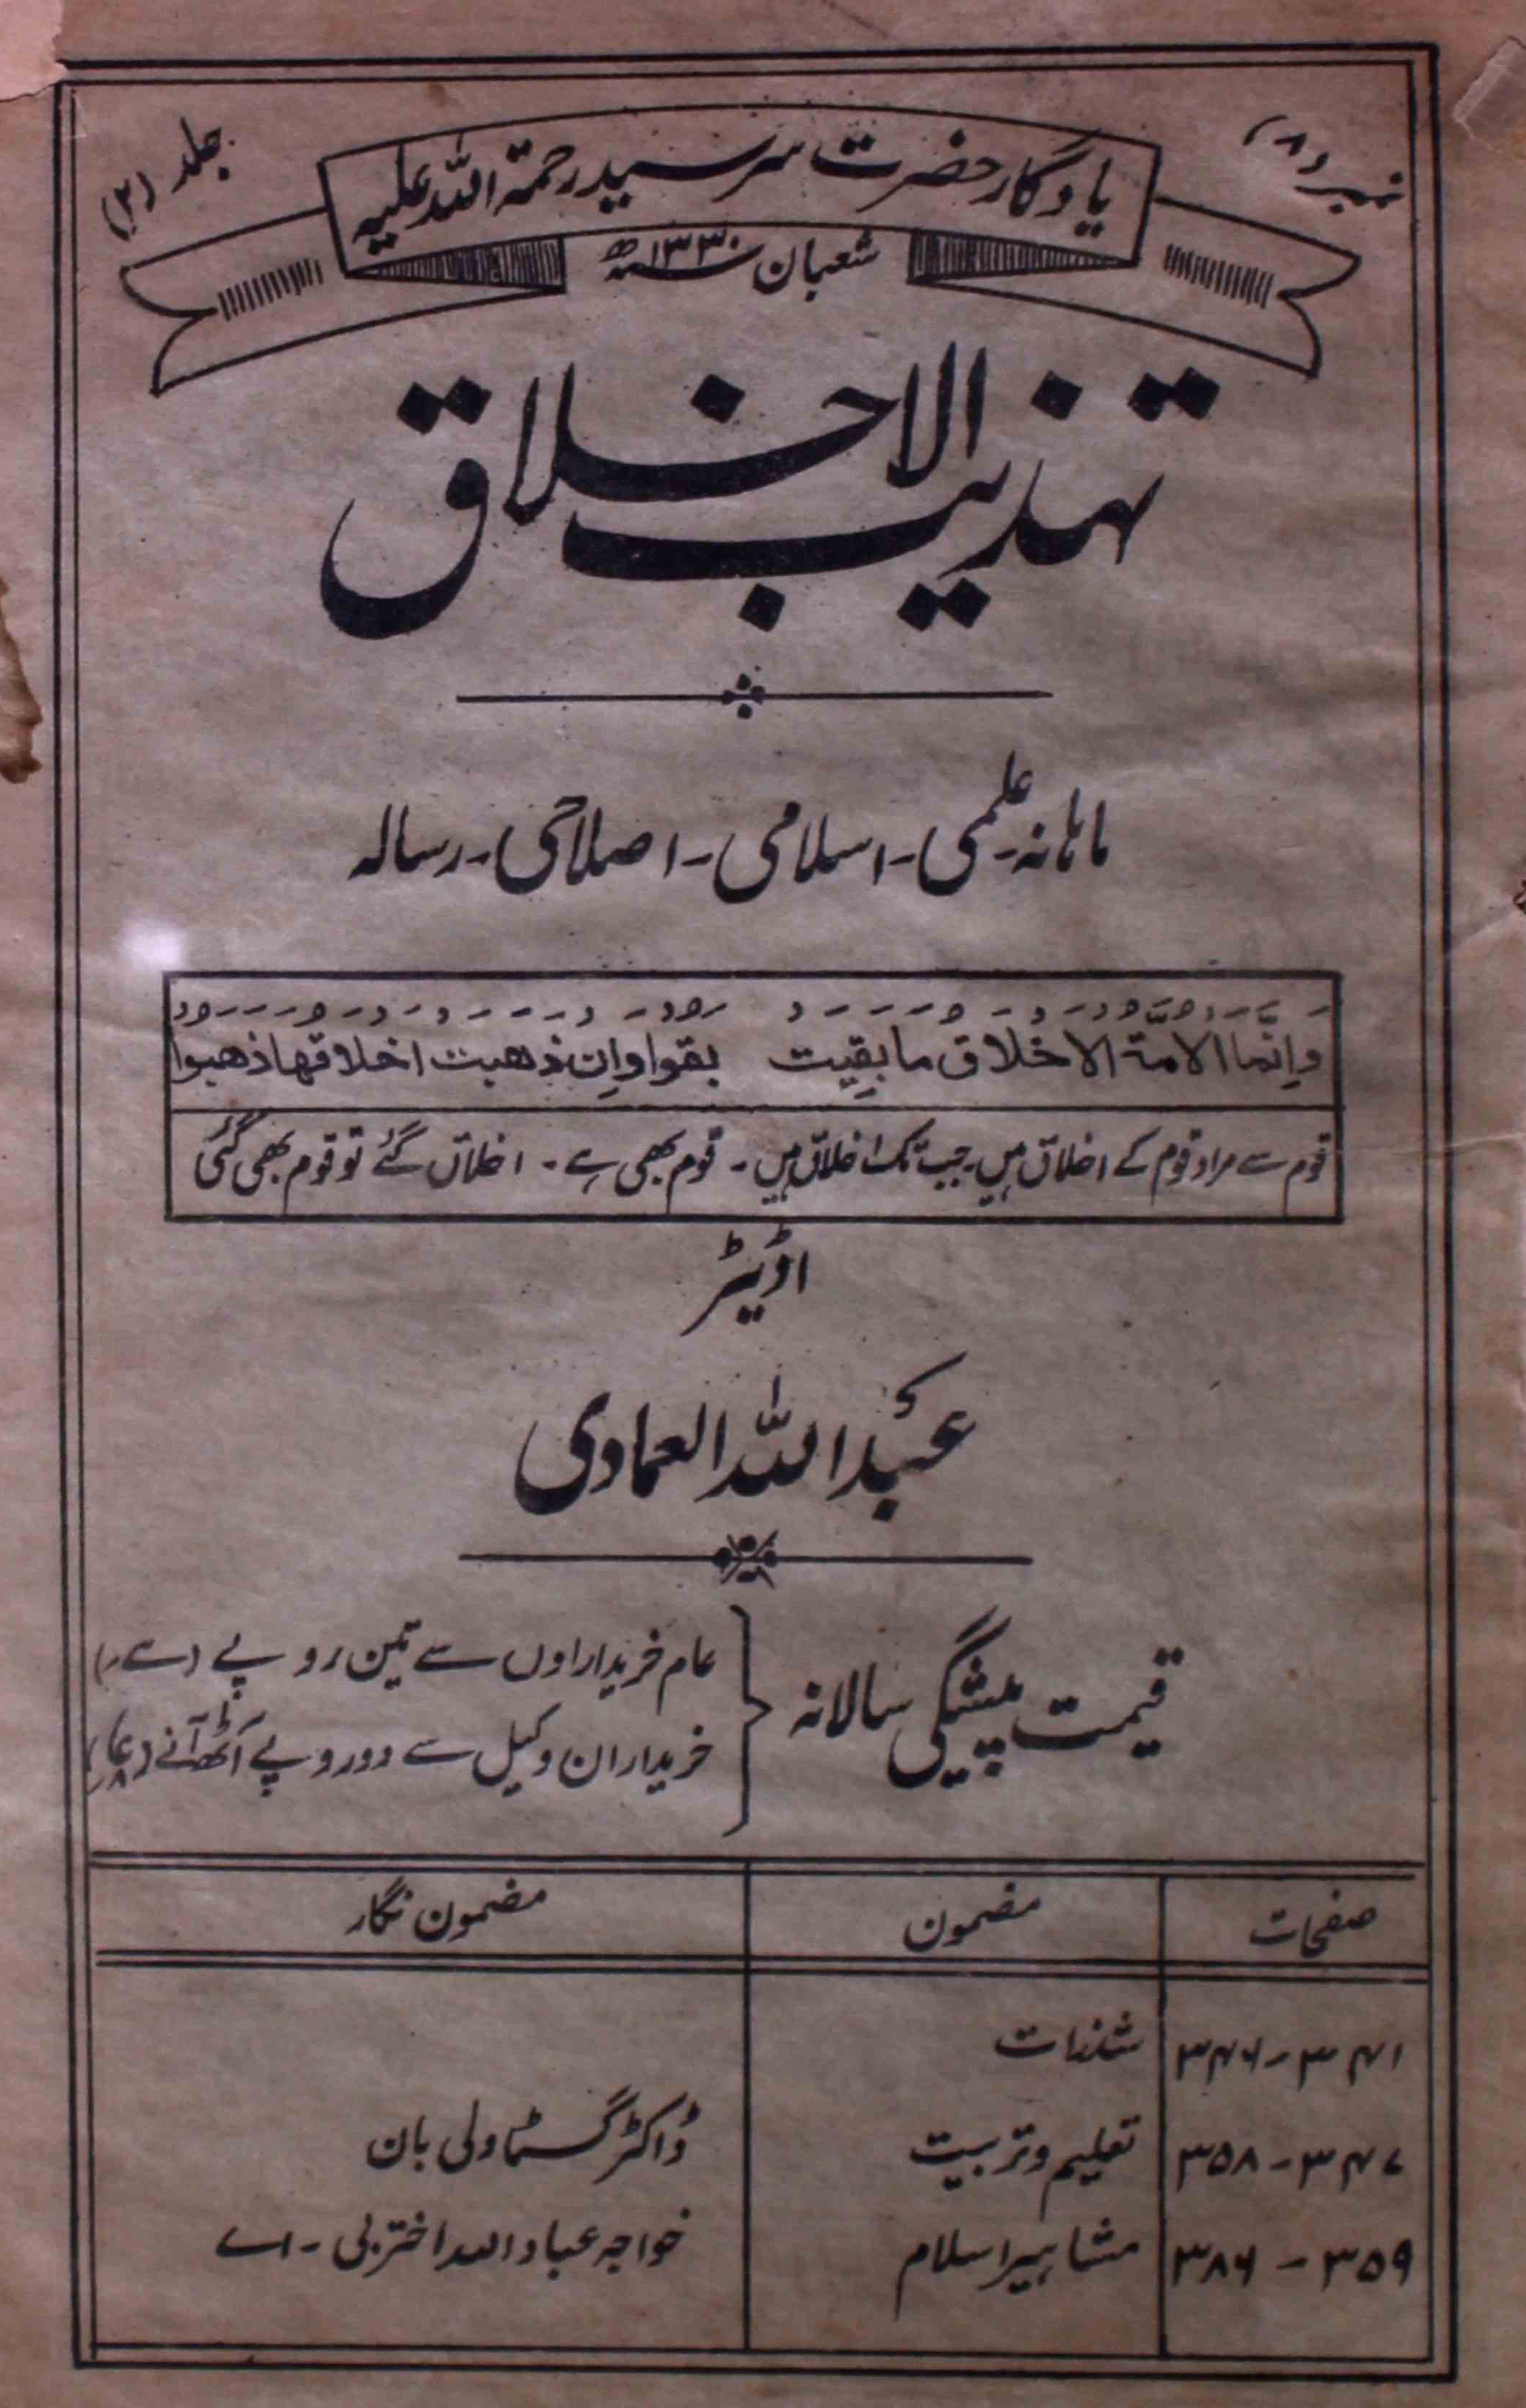 نمبر (۸)
یادگار حضرت سرسید رحمۃ اللہ علیہ
جلد (۲)
شعبان ۱۳۳۰ھ
تہذیب الاخلاق
ماہانہ - علمی - اسلامی - اصلاحی - رسالہ
وإنما الامة الاخلاق ما بقيت بقوا وإن ذهبت اخلاقها ذهبوا
قوم سے مراد قوم کے اخلاق ہیں جب تک اخلاق ہیں - قوم بھی ہے - اخلاق گئے تو قوم بھی گئی
اڈیٹر
عبد اللہ العمادی
قیمت پیشگی سالانہ
عام خریداراوں سے تین روپے
خریداران وکیل سے دو روپے آٹھ آنے
صفحات مضمون مضمون نگار
۳۴۱-۳۴۶ شذرات
۳۴۷-۳۵۸ تعلیم و تربیت ڈاکٹر گستاولی بان
۳۵۹-۳۸۶ مشاہیر اسلام خواجہ عباد اللہ اختر بی - اے